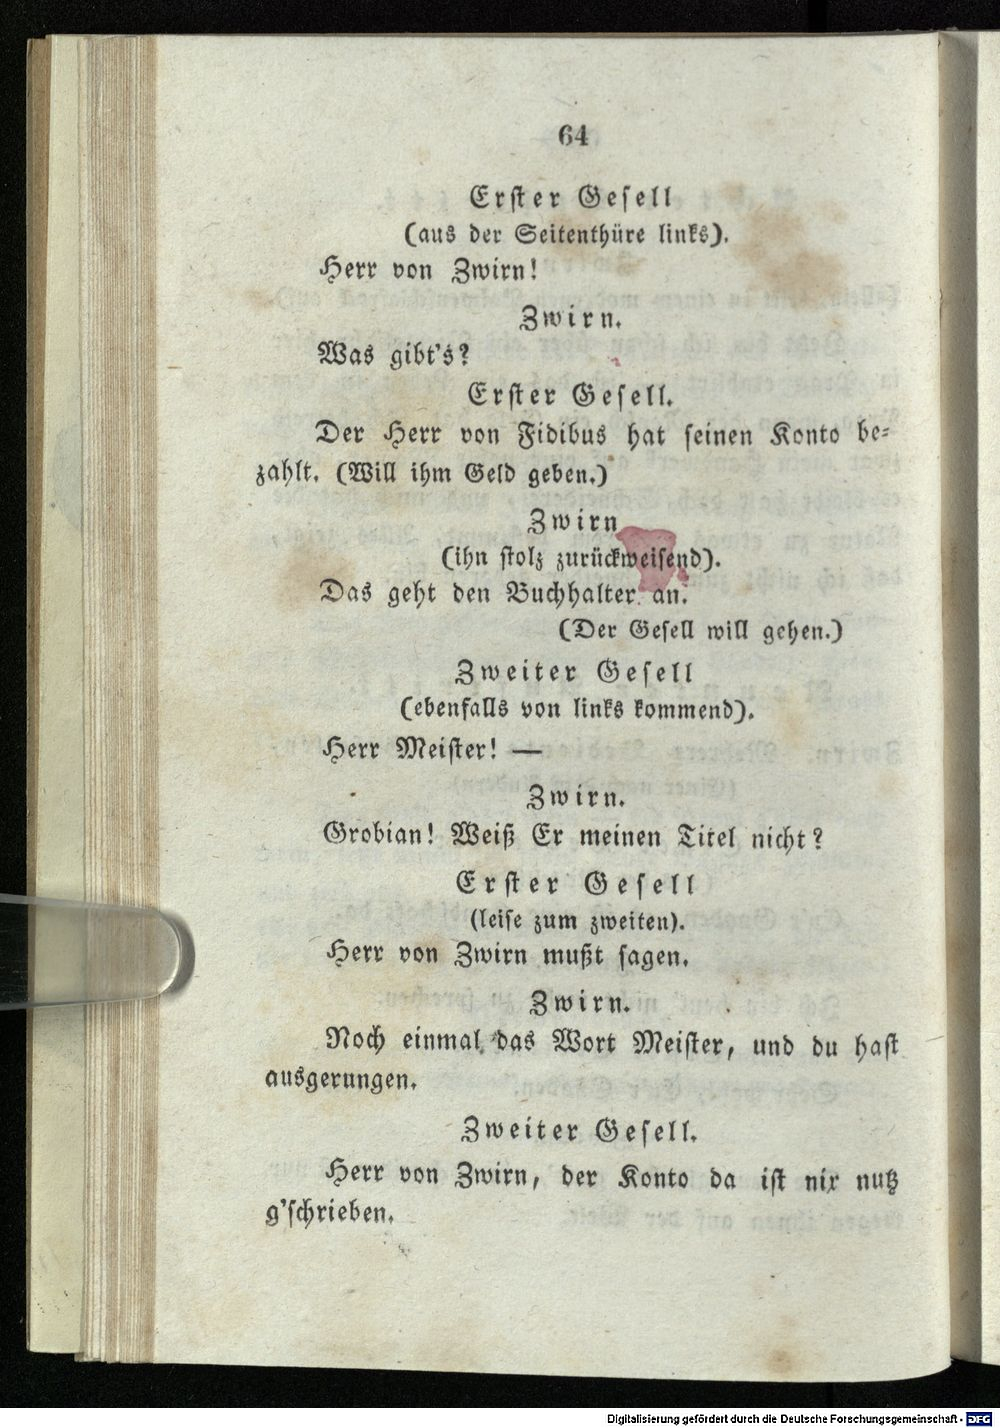 64
Erster Gesell
(aus der Seitenthüre links).
Herr von Zwirn!
Zwirn.
Was gibt's?
Erster Gesell.
Der Herr von Fidibus hat seinen Konto be-
zahlt. (Will ihm Geld geben.)
Zwirn
(ihn stolz zurückweisend).
Das geht den Buchhalter an.
(Der Gesell will gehen.)
Zweiter Gesell
(ebenfalls von links kommend).
Herr Meister! —
Zwirn.
Grobian! Weiß Er meinen Titel nicht?
Erster Gesell
(leise zum zweiten).
Herr von Zwirn mußt sagen.
Zwirn.
Noch einmal das Wort Meister, und du hast
ausgerungen.
Zweiter Gesell.
Herr von Zwirn, der Konto da ist nix nutz
g'schrieben.
Digitalisierung gefördert durch die Deutsche Forschungsgemeinschaft - DFG